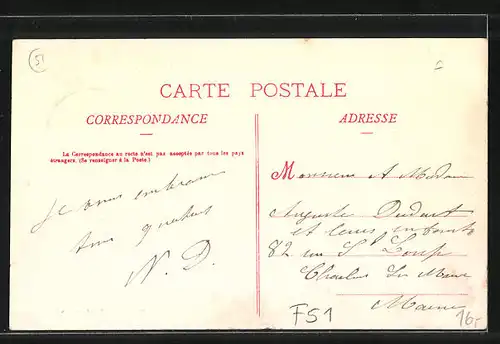 51
CARTE POSTALE
CORRESPONDANCE
La Correspondance au recto n'est pas acceptée par tous les pays
étrangers. (Se renseigner à la Poste.)
Je vous embrasse
tous
N. D.
ADRESSE
Monsieur
Auguste
et leurs enfants
82 rue St Loup
Marne
F51
16,-